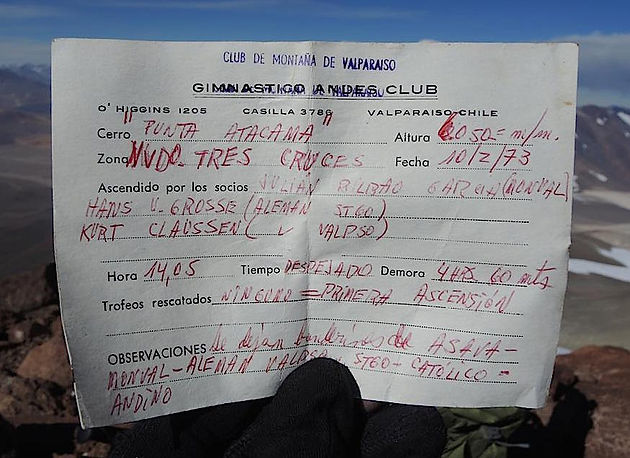 CLUB DE MONTAÑA DE VALPARAISO
GIMNASTICO ANDES CLUB
O' HIGGINS 1205 CASILLA 3786 VALPARAISO-CHILE
Cerro "PUNTA ATACAMA" Altura 6050= m/m.
Zona NUDO TRES CRUCES Fecha 10/2/73
Ascendido por los socios JULIAN BILBAO GARCIA (MONVAL)
HANS U. GROSSE (ALEMAN STGO)
KURT CLAUSSEN ( VALPSO)
Hora 14,05 Tiempo DESPEJADO Demora 4 HRS 60 mts
Trofeos rescatados NINGUNO = PRIMERA ASCENSIÓN
OBSERVACIONES Se dejan banderines de ASAVA-
MONVAL-ALEMAN VALPSO y STGO-CATOLICO-
ANDINO